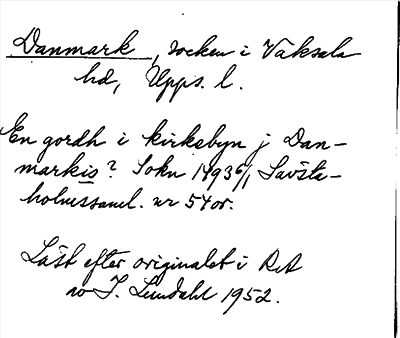 Danmark, socken i Vaksala
hd, Upps. l.
En gordh i kirkebyn j Dan-
markis? Sokn 1493 6/1 Säfsta-
holmssaml. nr 54 or.
Läst efter originalet i RA
av I. Lundahl 1952.